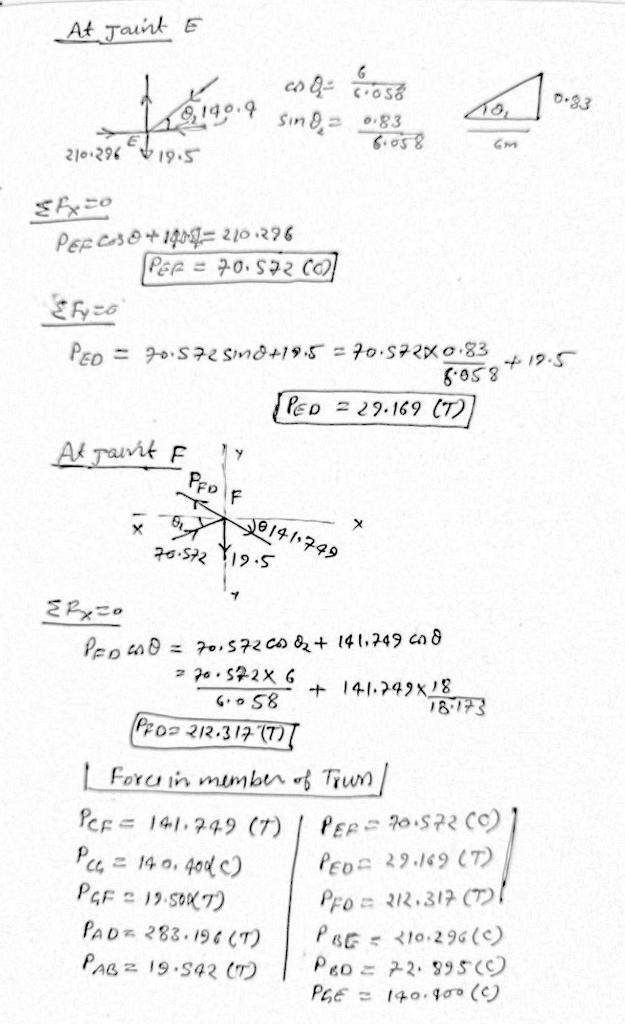 At Joint E
cos θ₂ = 6/6.058
θ₂ 140.4
sin θ₂ = 0.83/6.058
θ₂
0.83
6m
E
210.296
19.5
ΣFx=0
PEF cosθ + 140.4 = 210.296
PEF = 70.572 (C)
ΣFy=0
PED = 70.572 sinθ+19.5 = 70.572 x 0.83/6.058 + 19.5
PED = 29.169 (T)
At Joint F
Y
PFD
F
X
θ₂
θ 141.749
X
70.572
19.5
Y
ΣFx=0
PFD cosθ = 70.572 cos θ₂ + 141.749 cosθ
= 70.572 x 6/6.058 + 141.749 x 18/18.173
PFD = 212.317 (T)
Force in member of Truss
PCF = 141.749 (T) PEF = 70.572 (C)
PCG = 140.400 (C) PED = 29.169 (T)
PGF = 19.500 (T) PFD = 212.317 (T)
PAD = 283.196 (T) PBE = 210.296 (C)
PAB = 19.542 (T) PBD = 72.895 (C)
PGE = 140.400 (C)